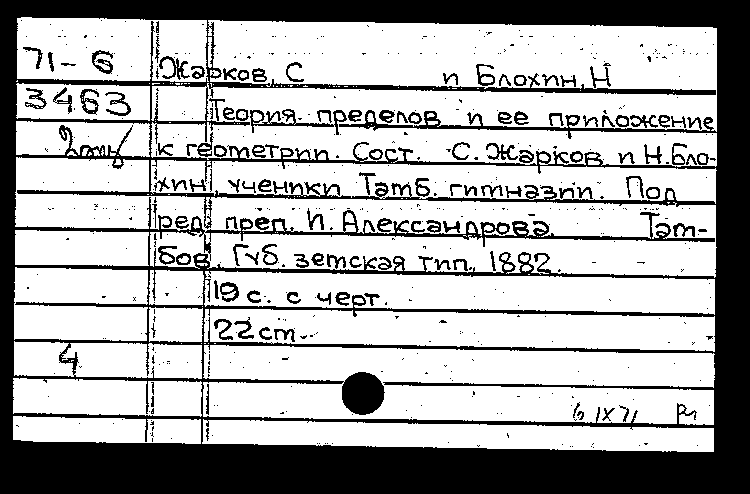 71-6 Жарков, С и Блохин, Н
3463 Теория пределов и ее приложение
к геометрии. Сост. С. Жарков и Н. Бло-
хин, ученики Тамб. гимназии. Под
ред. преп. И. Александрова. Там-
бов, Губ. земская тип., 1882.
19 с. с черт.
22 см.
4
6 IX 71